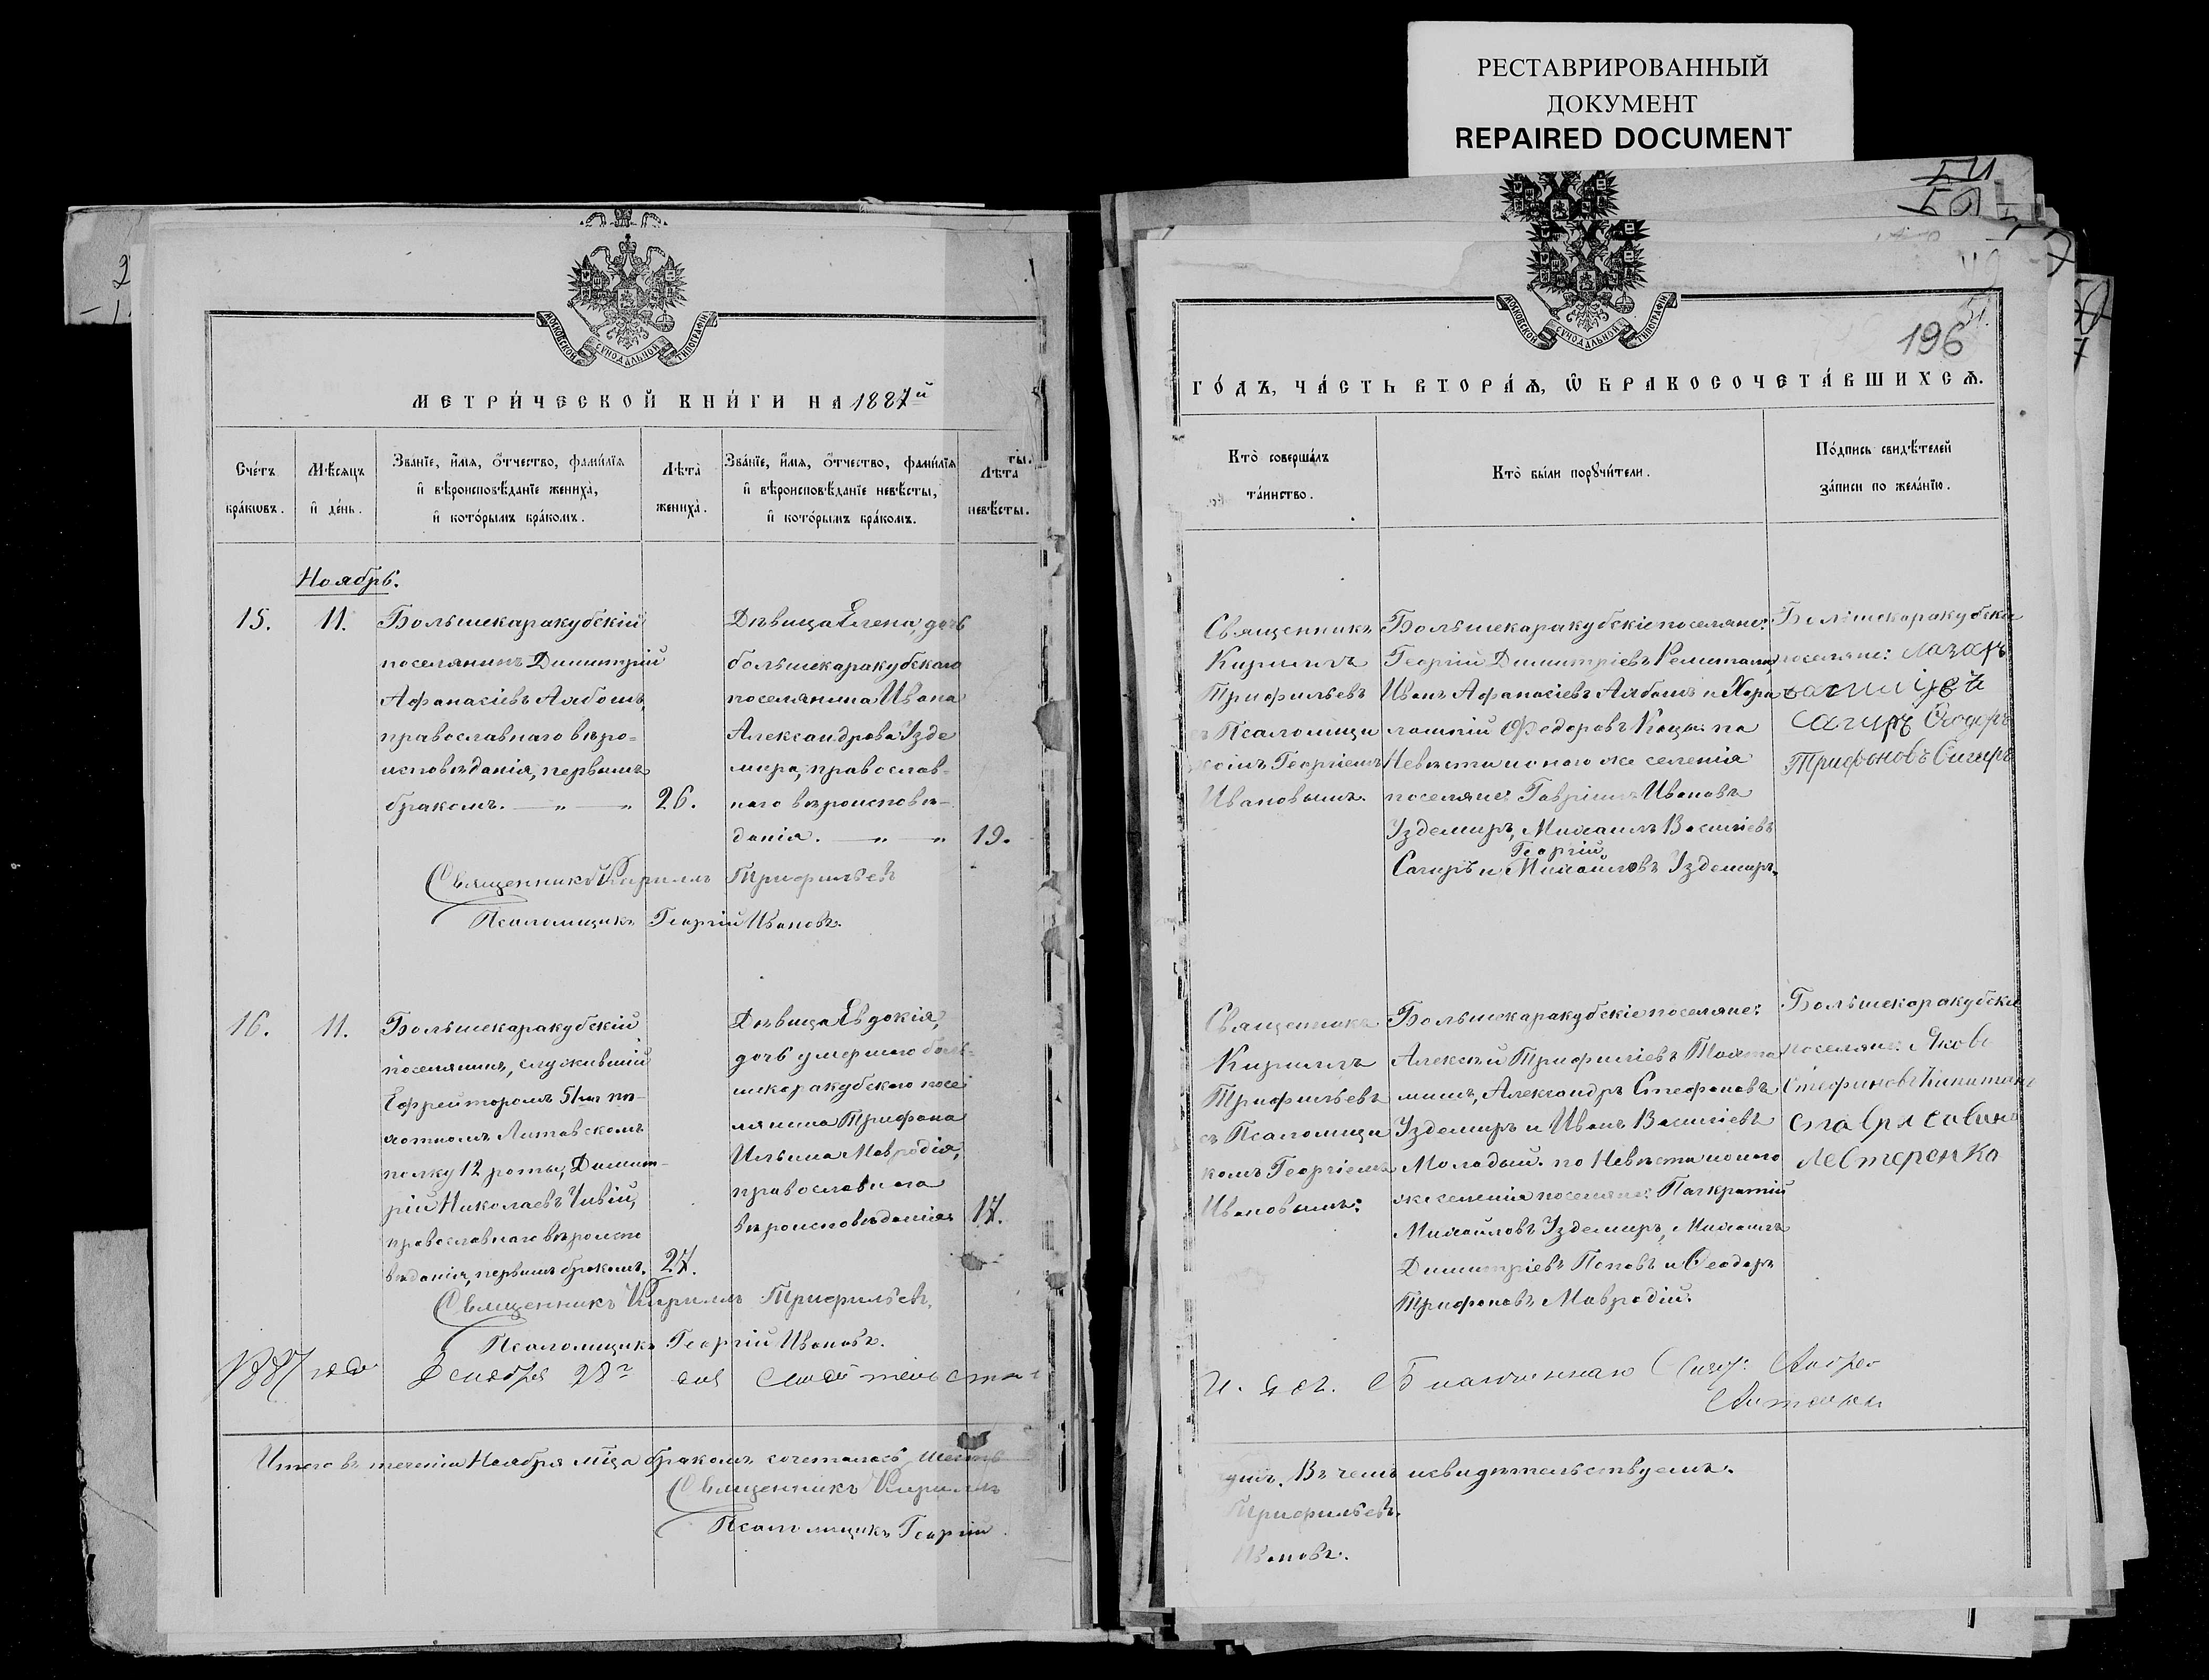 РЕСТАВРИРОВАННЫЙ
ДОКУМЕНТ
REPAIRED DOCUMENT
МОСКОВСКОЙ СѴНОДАЛЬНОЙ ТИПОГРАФІИ
МЕТРИ́ЧЕСКОЙ КНИ́ГИ НА 1887й
Сче́тъ
бра́кѡвъ.
Мѣ́сяцъ
и҆ де́нь.
Зва́нїе, и҆́мѧ, ѻ҆́тчество, фами́лїѧ
и҆ вѣроисповѣ́данїе жениха̀,
и҆ кото́рымъ бра́комъ.
Лѣта̀
жениха̀.
Зва́нїе, и҆́мѧ, ѻ҆́тчество, фами́лїѧ
и҆ вѣроисповѣ́данїе невѣ́сты,
и҆ кото́рымъ бра́комъ.
Лѣта̀
невѣ́сты.
Ноябрь.
15.
11.
Большекаракубскій
поселянинъ Димитрій
Афанасіевъ Алботъ,
православнаго вѣро=
исповѣданія, первымъ
бракомъ. — „ — „
26.
Дѣвица Елена, дочь
большекаракубскаго
поселянина Ивана
Александрова Узде
мира, православ-
наго вѣроисповѣ-
данія. — „ „
19.
Священникъ Кириллъ Трифильевъ
Псаломщикъ Георгій Ивановъ.
16.
11.
Большекаракубскій
поселянинъ, служившій
Ефрейторомъ 51м пѣ-
хотномъ Литовскомъ
полку 12 роты, Димит-
рій Николаевъ Чивій,
православнаго вѣроиспо
вѣданія, первымъ бракомъ.
27.
Дѣвица Евдокія,
дочь умершаго боль=
шекаракубскаго посе
лянина Трифона
Ильина Мавродія,
православнаго
вѣроисповѣданія
17.
Священникъ Кириллъ Трифильевъ.
Псаломщикъ Георгій Ивановъ.
1887 года Декабря 28 дня
Итого въ теченіи Ноября мѣсяца бракомъ сочеталось шесть
Священникъ Кириллъ
Псаломщикъ Георгій
196
ГО́ДЪ, ЧА́СТЬ ВТОРА́Ѧ, Ѽ БРАКОСОЧЕТА́ВШИХСѦ.
Кто̀ соверша́лъ
та́инство.
Кто̀ бы́ли порꙋчи́тели.
По́дпись свидѣ́телей
за́писи по жела́нїю.
Священникъ
Кириллъ
Трифильевъ
съ Псаломщи
комъ Георгіемъ
Ивановымъ.
Большекаракубскіе поселяне:
Георгій Димитріевъ
Иванъ Афанасіевъ Алботъ и Хара
лампій Федоровъ Коцы по
Невѣстѣ ионого же селенія
поселяне Гавріилъ Ивановъ
Уздемиръ, Михаилъ Василіевъ
Георгій
Сагиръ и Михайловъ Уздемиръ.
Большекаракубскіе
поселяне: Лазарь
Сагиръ Ѳеодоръ
Трифоновъ Сагиръ
Священникъ
Кириллъ
Трифильевъ
съ Псаломщи
комъ Георгіемъ
Ивановымъ:
Большекаракубскіе поселяне:
Алексѣй Трифиліевъ
Александръ Стефановъ
Уздемиръ и Иванъ Василіевъ
Молодый. по Невѣстѣ ионого
же селенія поселяне: Панкратій
Михайловъ Уздемиръ, Михаилъ
Димитріевъ Поповъ и Ѳеодоръ
Трифоновъ Мавродій.
Большекаракубскіе
поселяне: Яковъ
Стефановъ
Нестеренко
дит. Въ чемъ и свидѣтельствуемъ.
Трифильевъ.
Ивановъ.